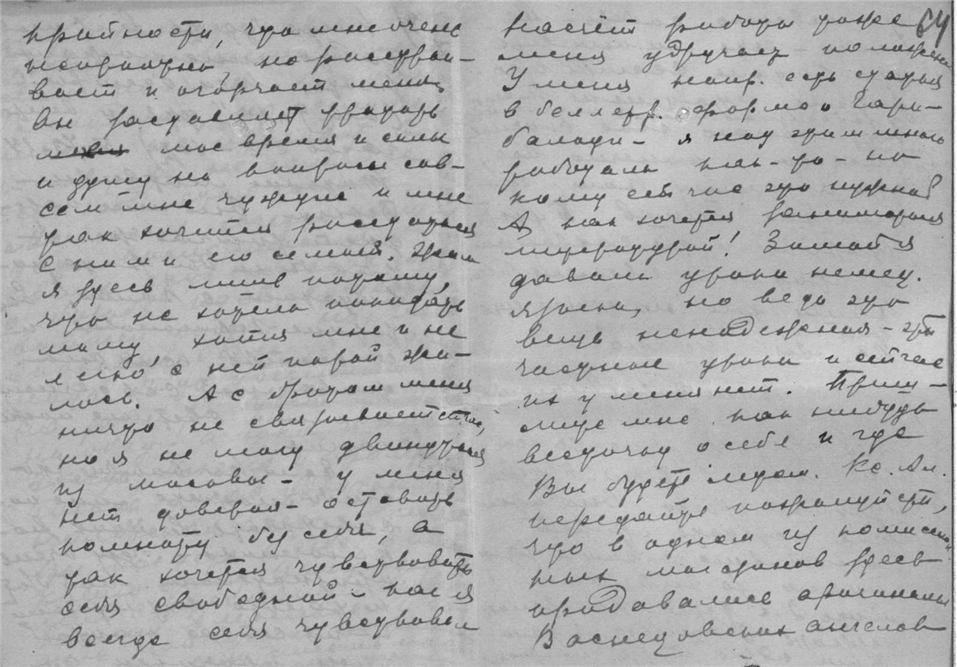 крайности, что мне очень
неприятно но расстраи-
вает и огорчает меня
Он заставляет тратить
мое время и силы
и душу на вопросы сов-
сем мне чуждые и мне
так хочется расстаться
с ним и его семьей. Жила
я здесь лишь потому,
что не хотела покидать
маму, хотя мне и не
легко с ней порой жи-
лось. А с братом меня
ничто не связывает сейчас,
но я не могу двинуться
из Москвы – у меня
нет доверья – оставить
комнату без себя, а
так хочется чувствовать
себя свободной – как я
всегда себя чувствовала
64
насчёт работы тоже
меня удручает положение
У меня напр. есть статья
в беллетр. форме о Гари-
бальди – я над этим много
работала как-то – но
кому сейчас это нужно?
А как хочется заниматься
литературой! Зимой я
давала уроки немец.
языка, но ведь это
вещь ненадежная – эти
частные уроки и сейчас
их у меня нет. Пиши-
те мне как нибудь
весточку о себе и где
Вы будете летом. Кс. Ал.
передайте пожалуйста,
что в одном из комиссион-
ных магазинов здесь
продавались оригиналы
Васнецовских ангелов